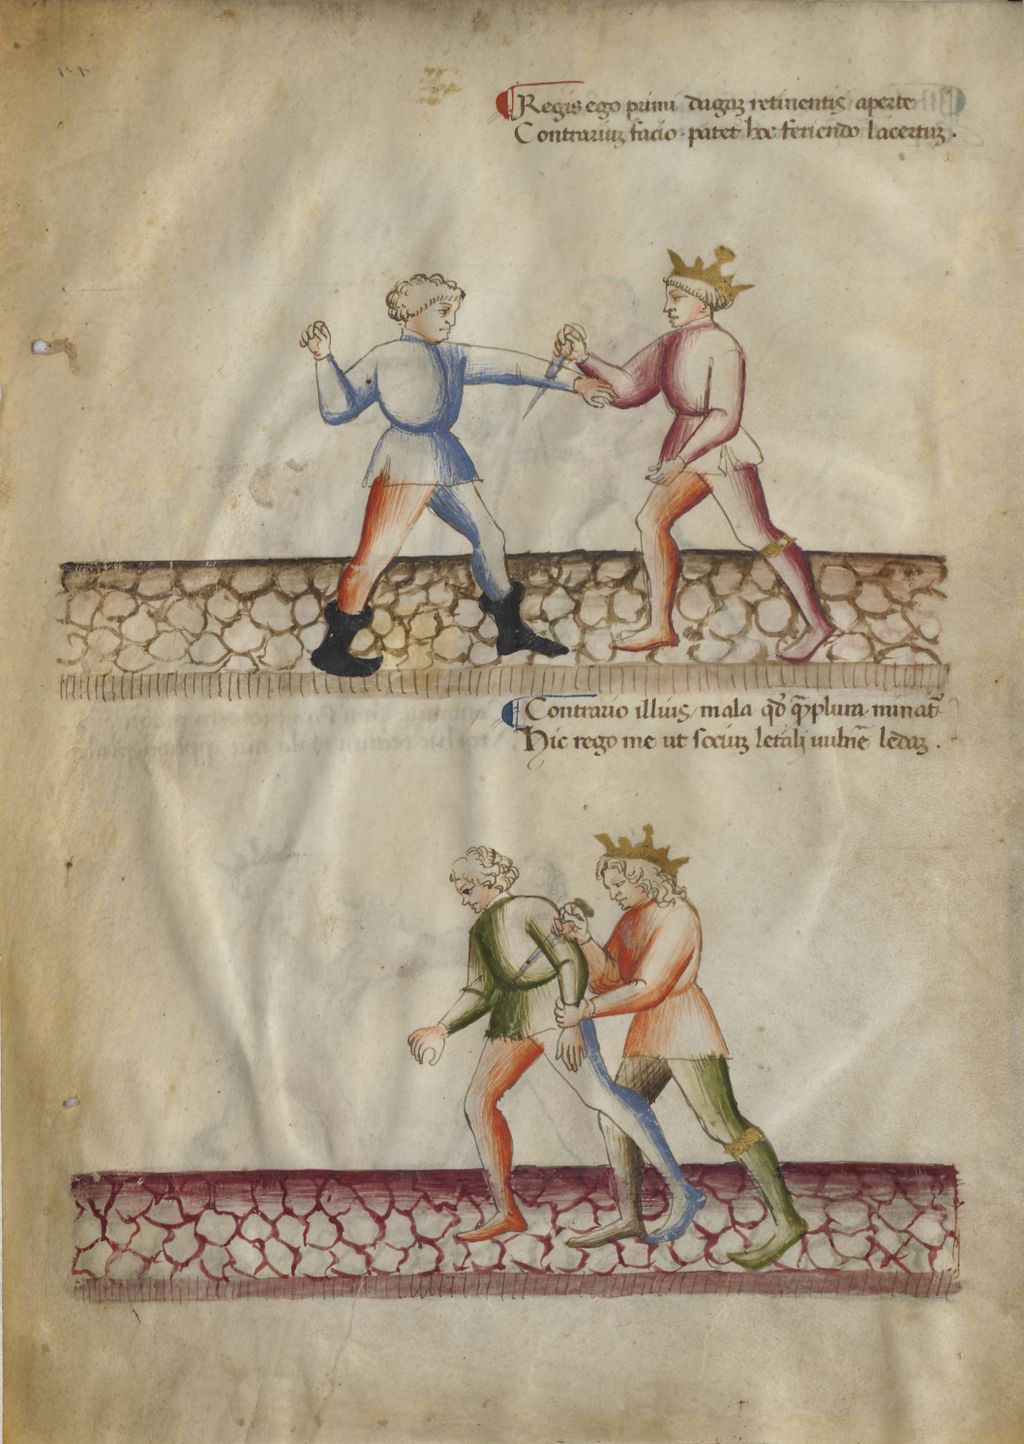 Regis ego primi dagaʒ retinentis aperte
Contrariuʒ facio · patet hoc feriendo lacertuʒ .
Contrario illius / mala qđ q̃plura minat̃
Hic rego me ut sociuʒ letali uulnẽ ledaʒ .